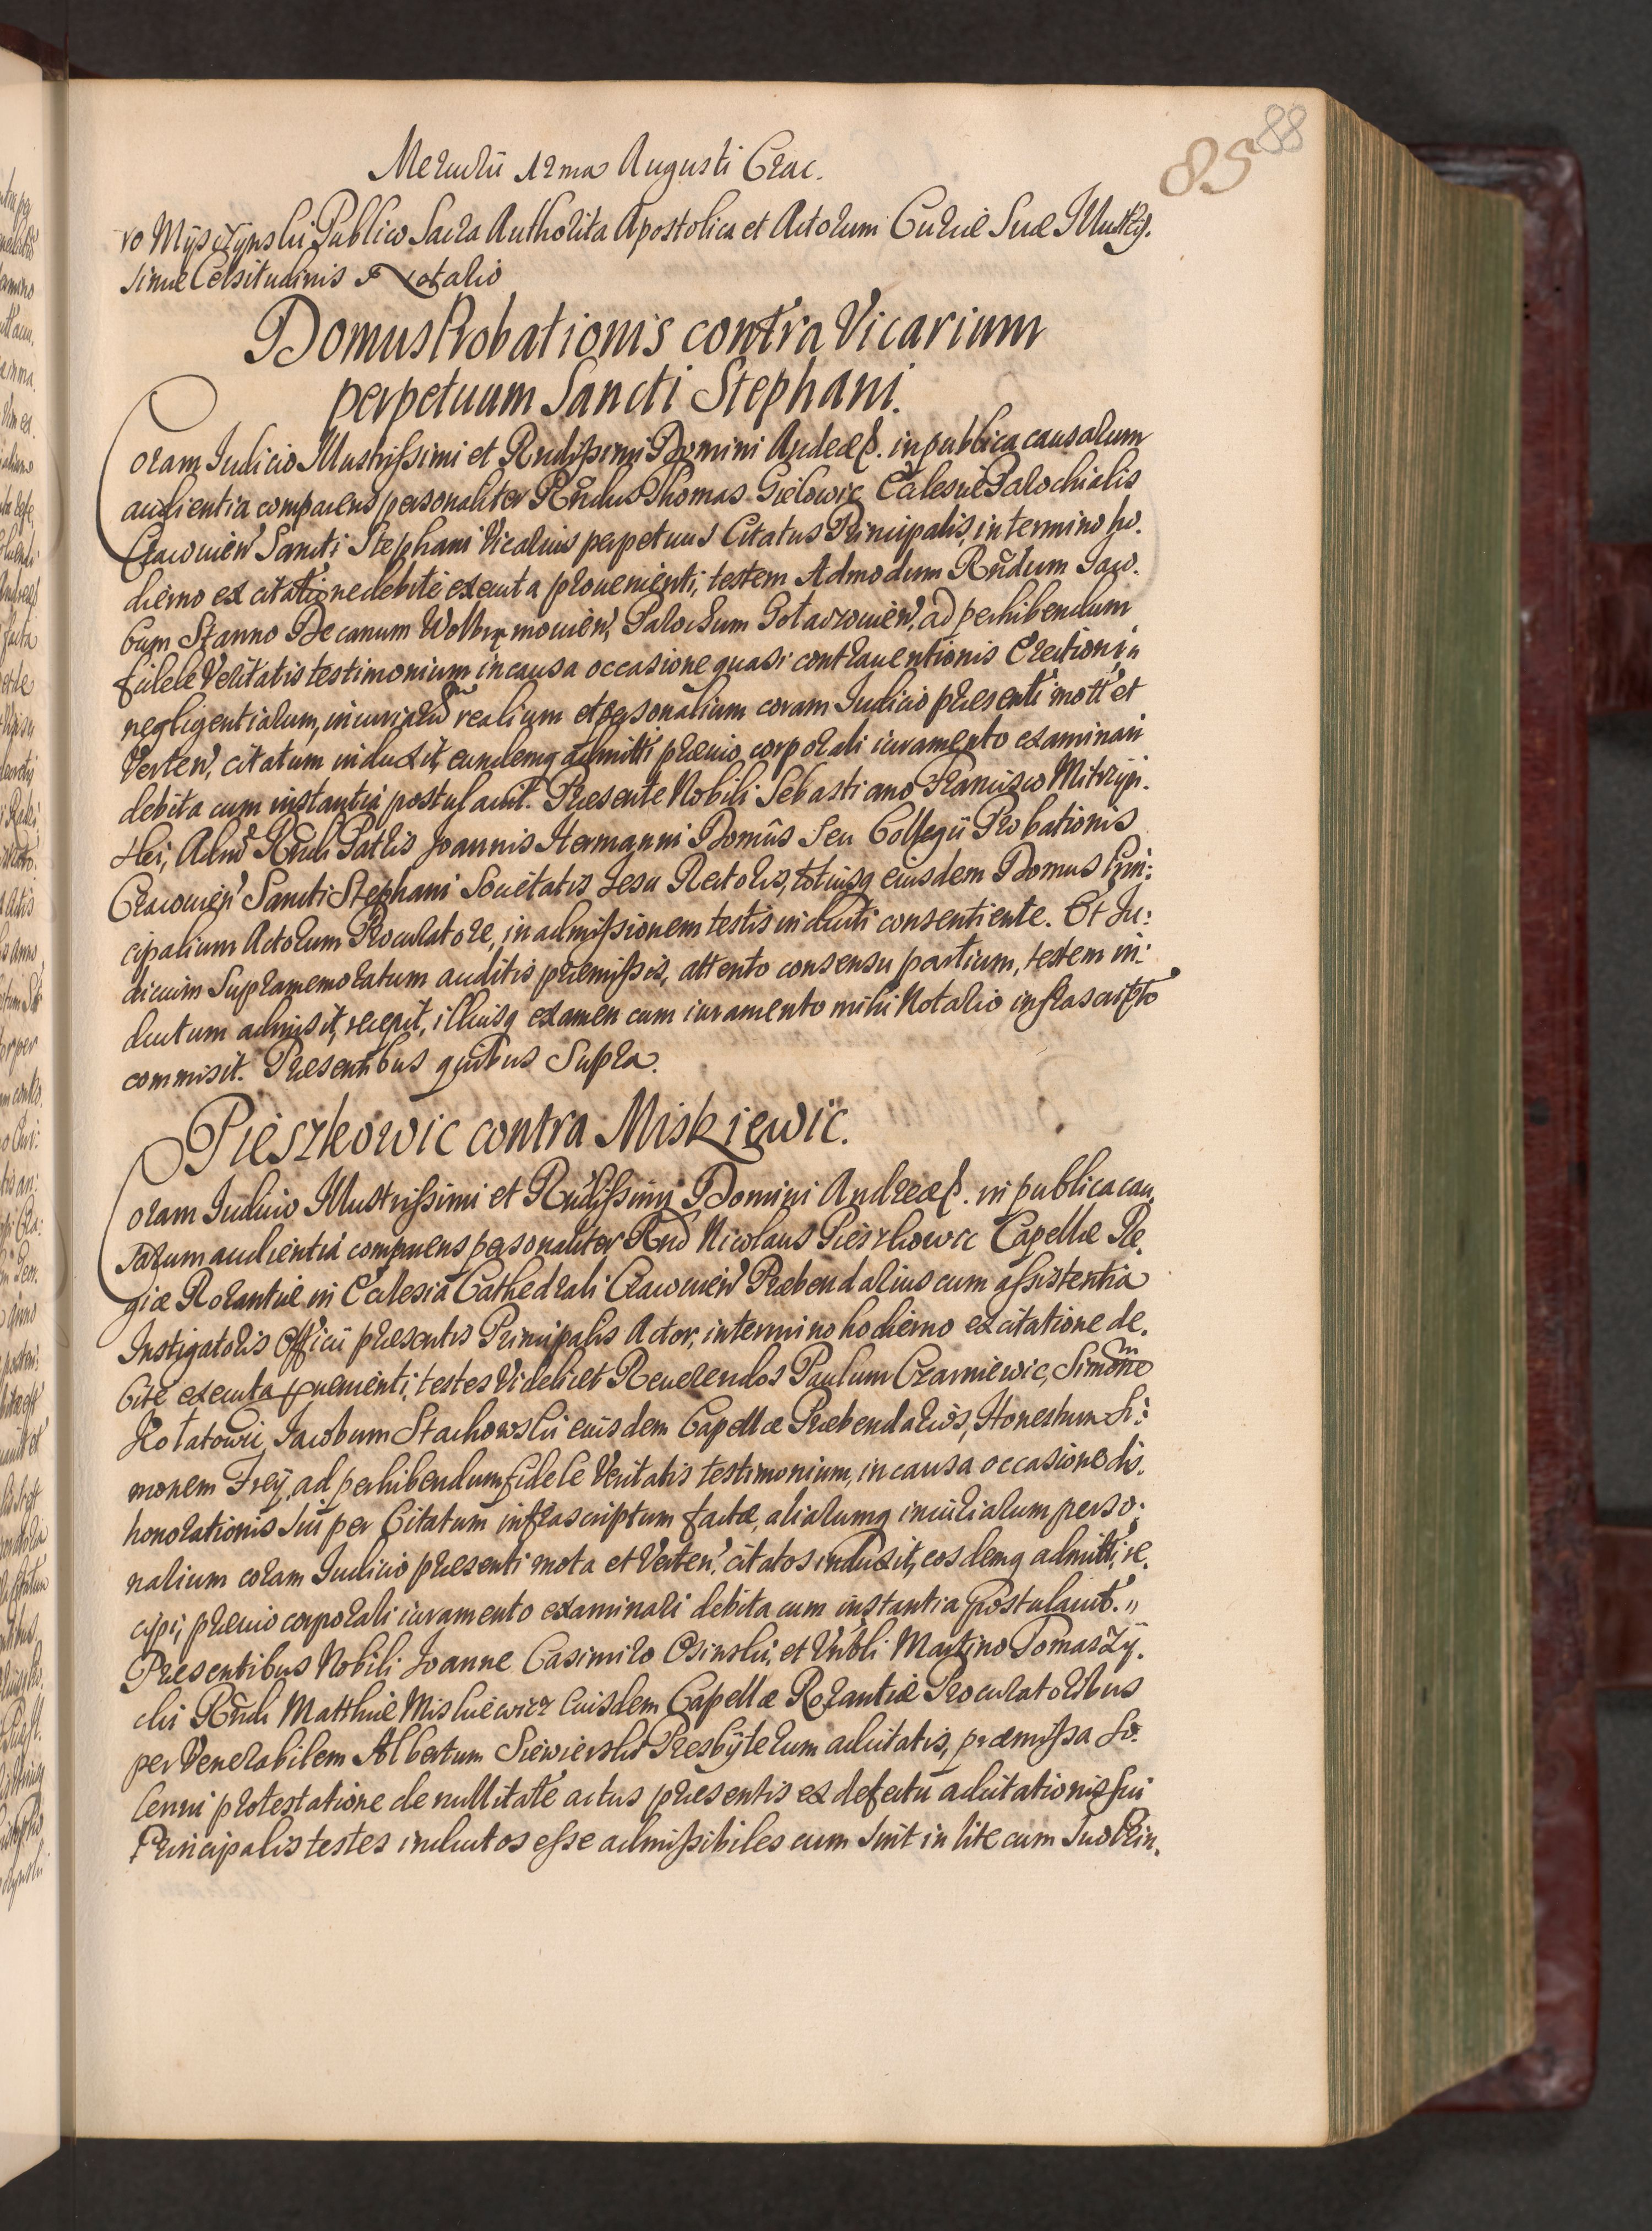 88
85
Mercurii 12 ma Augusti Crac.
ro Myszczynski Publico Sacra Authorita Apostolica et Actorum Curiæ Suæ Illustris.
simæ Celsitudinis Notario
Domus Probationis contra Vicarium
perpetuum Sancti Stephani.
Coram Iudicio Illustrissimi et Rndissimi Domini Andreæ P. in publica causarum
audientia comparens personaliter Rñdus Thomas Gielowic Ecclesiæ Parochialis
Cracovien' Sancti Stephani Vicarius perpetuus Citatus Principalis, in termino ho.
dierno ex citatione debite executa provenienti, testem Admodum Rñdum Iaco.
bum Stanno Decanum Wolbrmovien', Parochum Gotaczovien', ad perhibendum
fidele Veritatis testimonium in causa occasione quasi contraventionis Erectioni n
negligentiarum, iniuriarum realium et personalium coram Iudicio præsenti mott' et
Verten', citatum induxit, eundemq admitti prævio corporali iuramento examinari
debita cum instantia postulavit. Præsente Nobili Sebastiano Francisco Mitrzyi.
skei, Admd' Rndi Patris Joannis Hermanni Domûs Seu Collegii Probationis
Cracovien' Sancti Stephani Societatis Iesu Rectoris, totiusq eiusdem Domus Prin:
cipalium Actorum Procuratore, in admissionem testis inducti consentiente. Et Iu:
dicium Supramemoratum auditis præmissis, attento consensu partium, testem in:
ductum admisit, recepit, illiusq examen cum iuramento mihi Notario infrascripto
commisit. Præsentibus quibus Supra.
Pieszkowic contra Miskiewic.
Coram Iudicio Illustrissimi et Rndissimi Domini Andreæ P. in publica cau,
sarum audientia comparens personaliter Rnd Nicolaus Pieszkowic Capellæ Re,
giæ Rorantiæ in Ecclesia Cathedrali Cracovien' Præbendarius cum assistentia
Instigatoris Officii præsentis Principalis Actor, in termino hodierno ex citatione de,
bite executa pvenienti, testes Videlicet Reverendos Paulum Czarniewic, Simone m
Kołatowic, Iacobum Stachowski eiusdem Capellæ Præbendarios, Honestum Si:
monem Frey, ad perhibendum fidele Veritatis testimonium, in causa occasione dis.
honorationis sui per Citatum infrascriptum factæ, aliarumq iniuriarum perso:
nalium coram Iudicio præsenti mota et Verten', citatos induxit, eosdemq admitti, re,
cipi, prævio corporali iuramento examinari debita cum instantia postulavit. "
Præsentibus Nobili Joanne Casimiro Osinski, et Vrbli Martino Tomaszy.
cki Rndi Matthiæ Miskiewicz eiusdem Capellæ Rorantiæ Procuratoribus
per Venerabilem Albertum Siewierski Presbyterum adcitatis, præmissa So:
lenni protestatione de nullitate actus præsentis ex defectu adcitationis sui
Principalis testes inductos esse admissibiles cum sint in lite cum suo Prin,